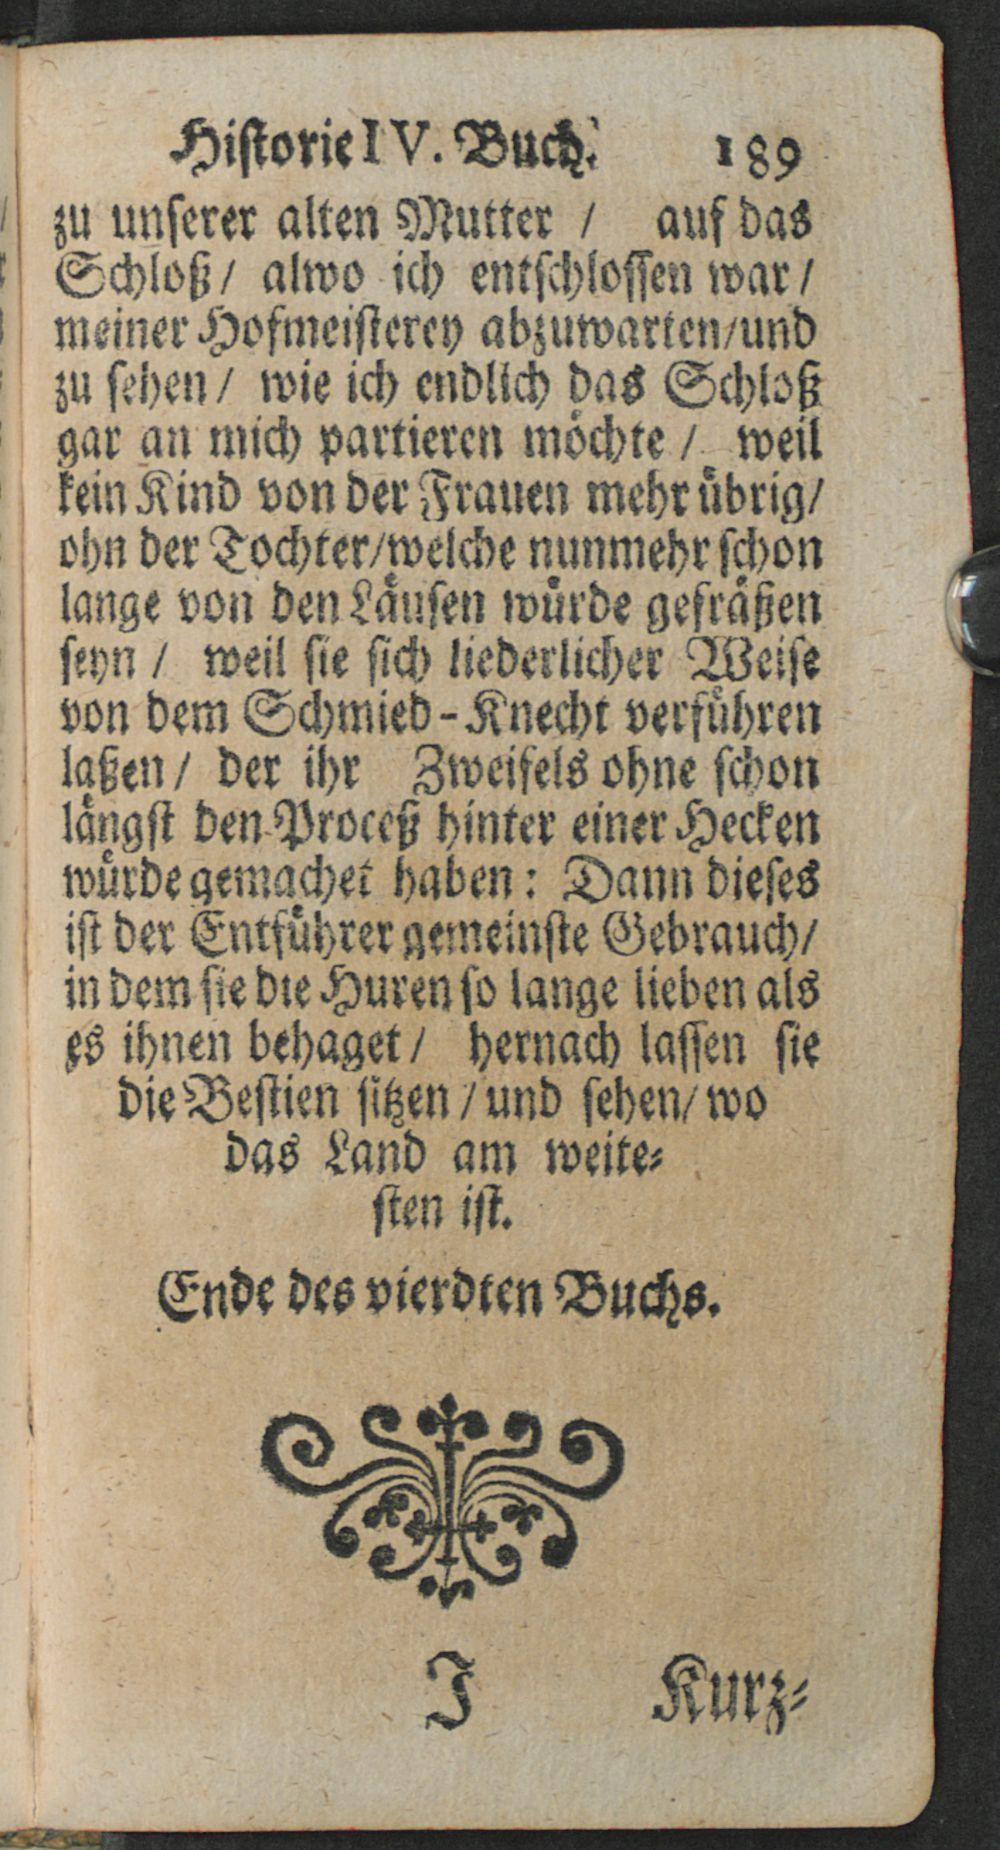 Historie IV. Buch. 189
zu unserer alten Mutter / auf das
Schloß / alwo ich entschlossen war /
meiner Hofmeisterey abzuwarten/und
zu sehen / wie ich endlich das Schloß
gar an mich partieren möchte / weil
kein Kind von der Frauen mehr übrig/
ohn der Tochter/welche nunmehr schon
lange von den Läusen würde gefräßen
seyn / weil sie sich liederlicher Weise
von dem Schmied-Knecht verführen
laßen / der ihr Zweifels ohne schon
längst den Proceß hinter einer Hecken
würde gemachet haben: Dann dieses
ist der Entführer gemeinste Gebrauch/
in dem sie die Huren so lange lieben als
es ihnen behaget / hernach lassen sie
die Bestien sitzen / und sehen/ wo
das Land am weite-
sten ist.
Ende des vierdten Buchs.
J Kurz-